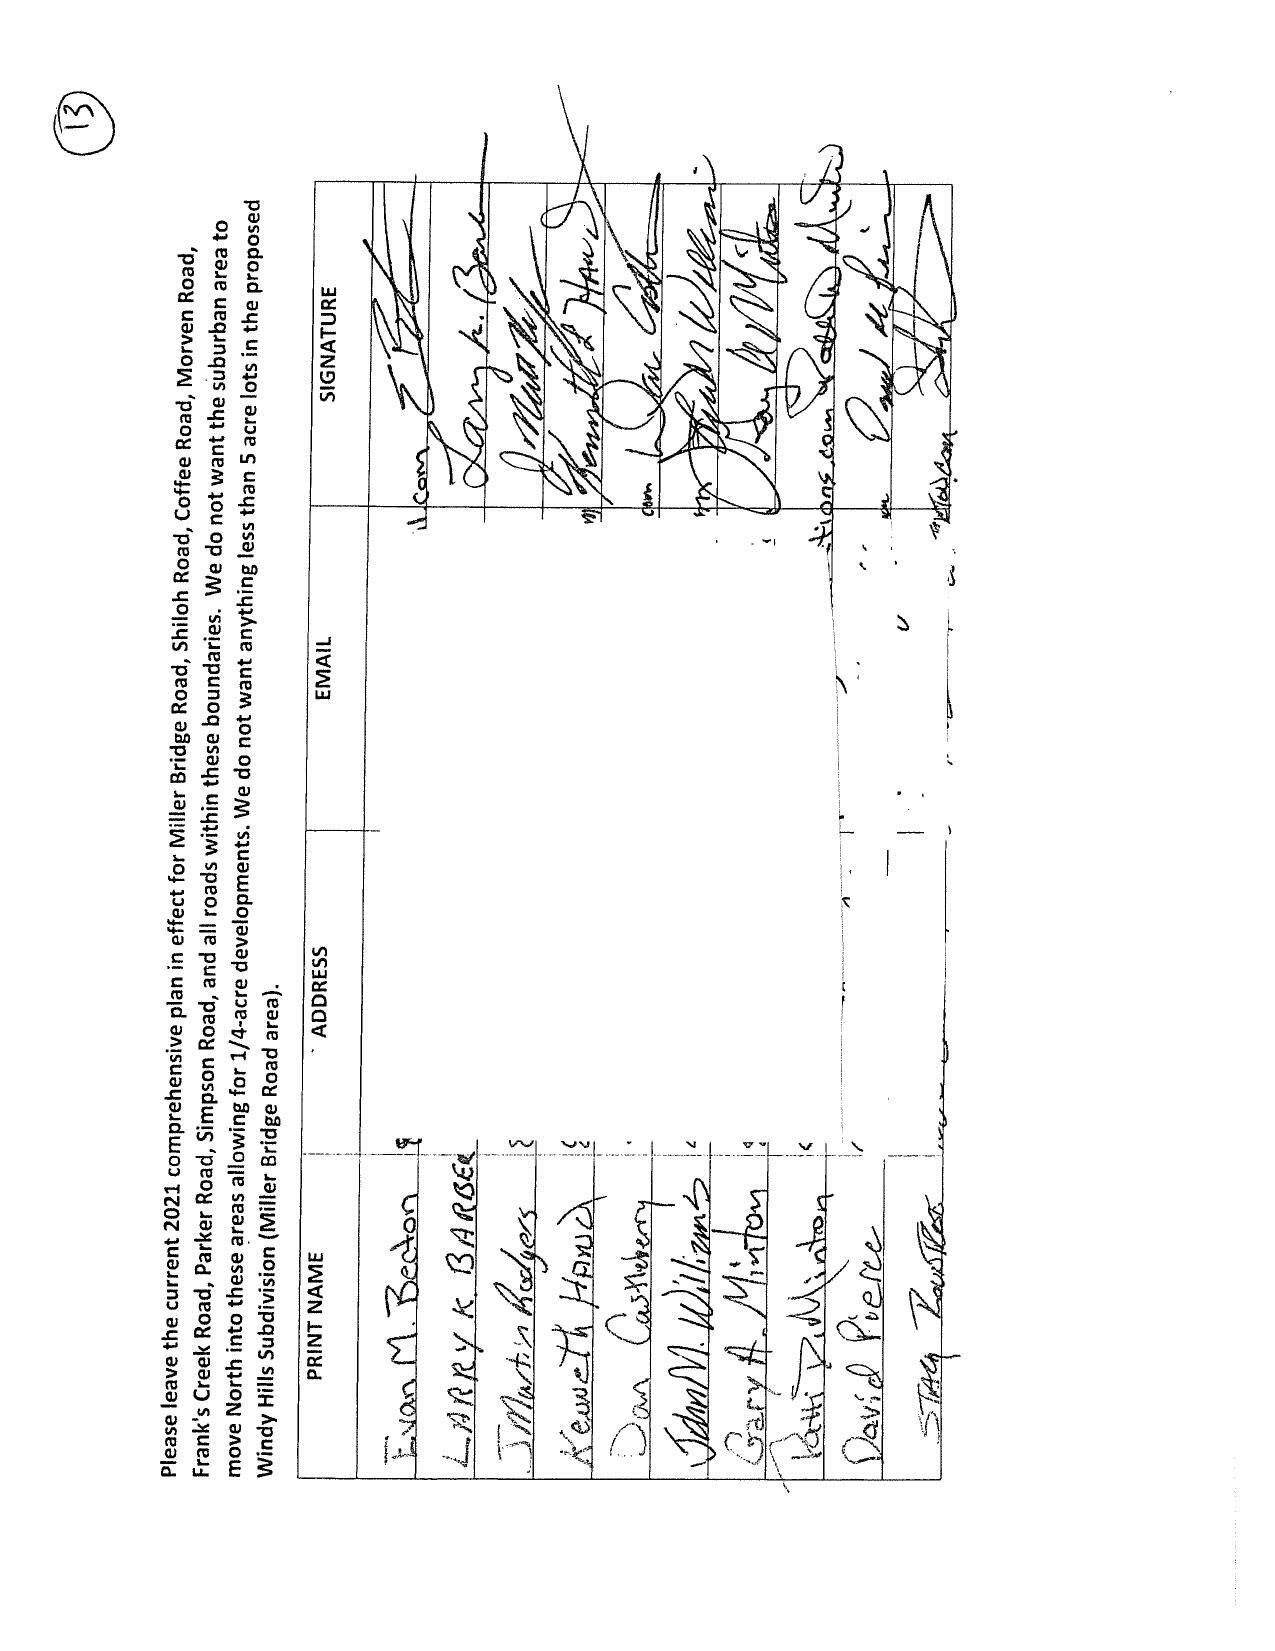 13
Please leave the current 2021 comprehensive plan in effect for Miller Bridge Road, Shiloh Road, Coffee Road, Morven Road,
Frank's Creek Road, Parker Road, Simpson Road, and all roads within these boundaries. We do not want the suburban area to
move North into these areas allowing for 1/4-acre developments. We do not want anything less than 5 acre lots in the proposed
Windy Hills Subdivision (Miller Bridge Road area).
PRINT NAME ADDRESS EMAIL SIGNATURE
Evan M. Becton il.com
LARRY K BARBER Larry K. Barber
J Martin Rodgers
Kenneth HAND m Kenneth L Hand
Dan Castleberry com Dan
John M. Williams m
Gary A. Minton Gary
Patti D. Minton tions.com Patti D Minton
David Pierce David
Stacy .com